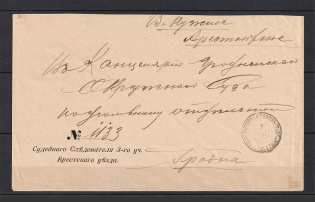 В. Нужное
Арестантское
Въ Канцелярію Гродненскаго
Окружнаго Суда
по уголовному отдѣленію
№ 1133
Судебнаго Слѣдователя 3-го уч.
Брестскаго уѣзда.
Гродна